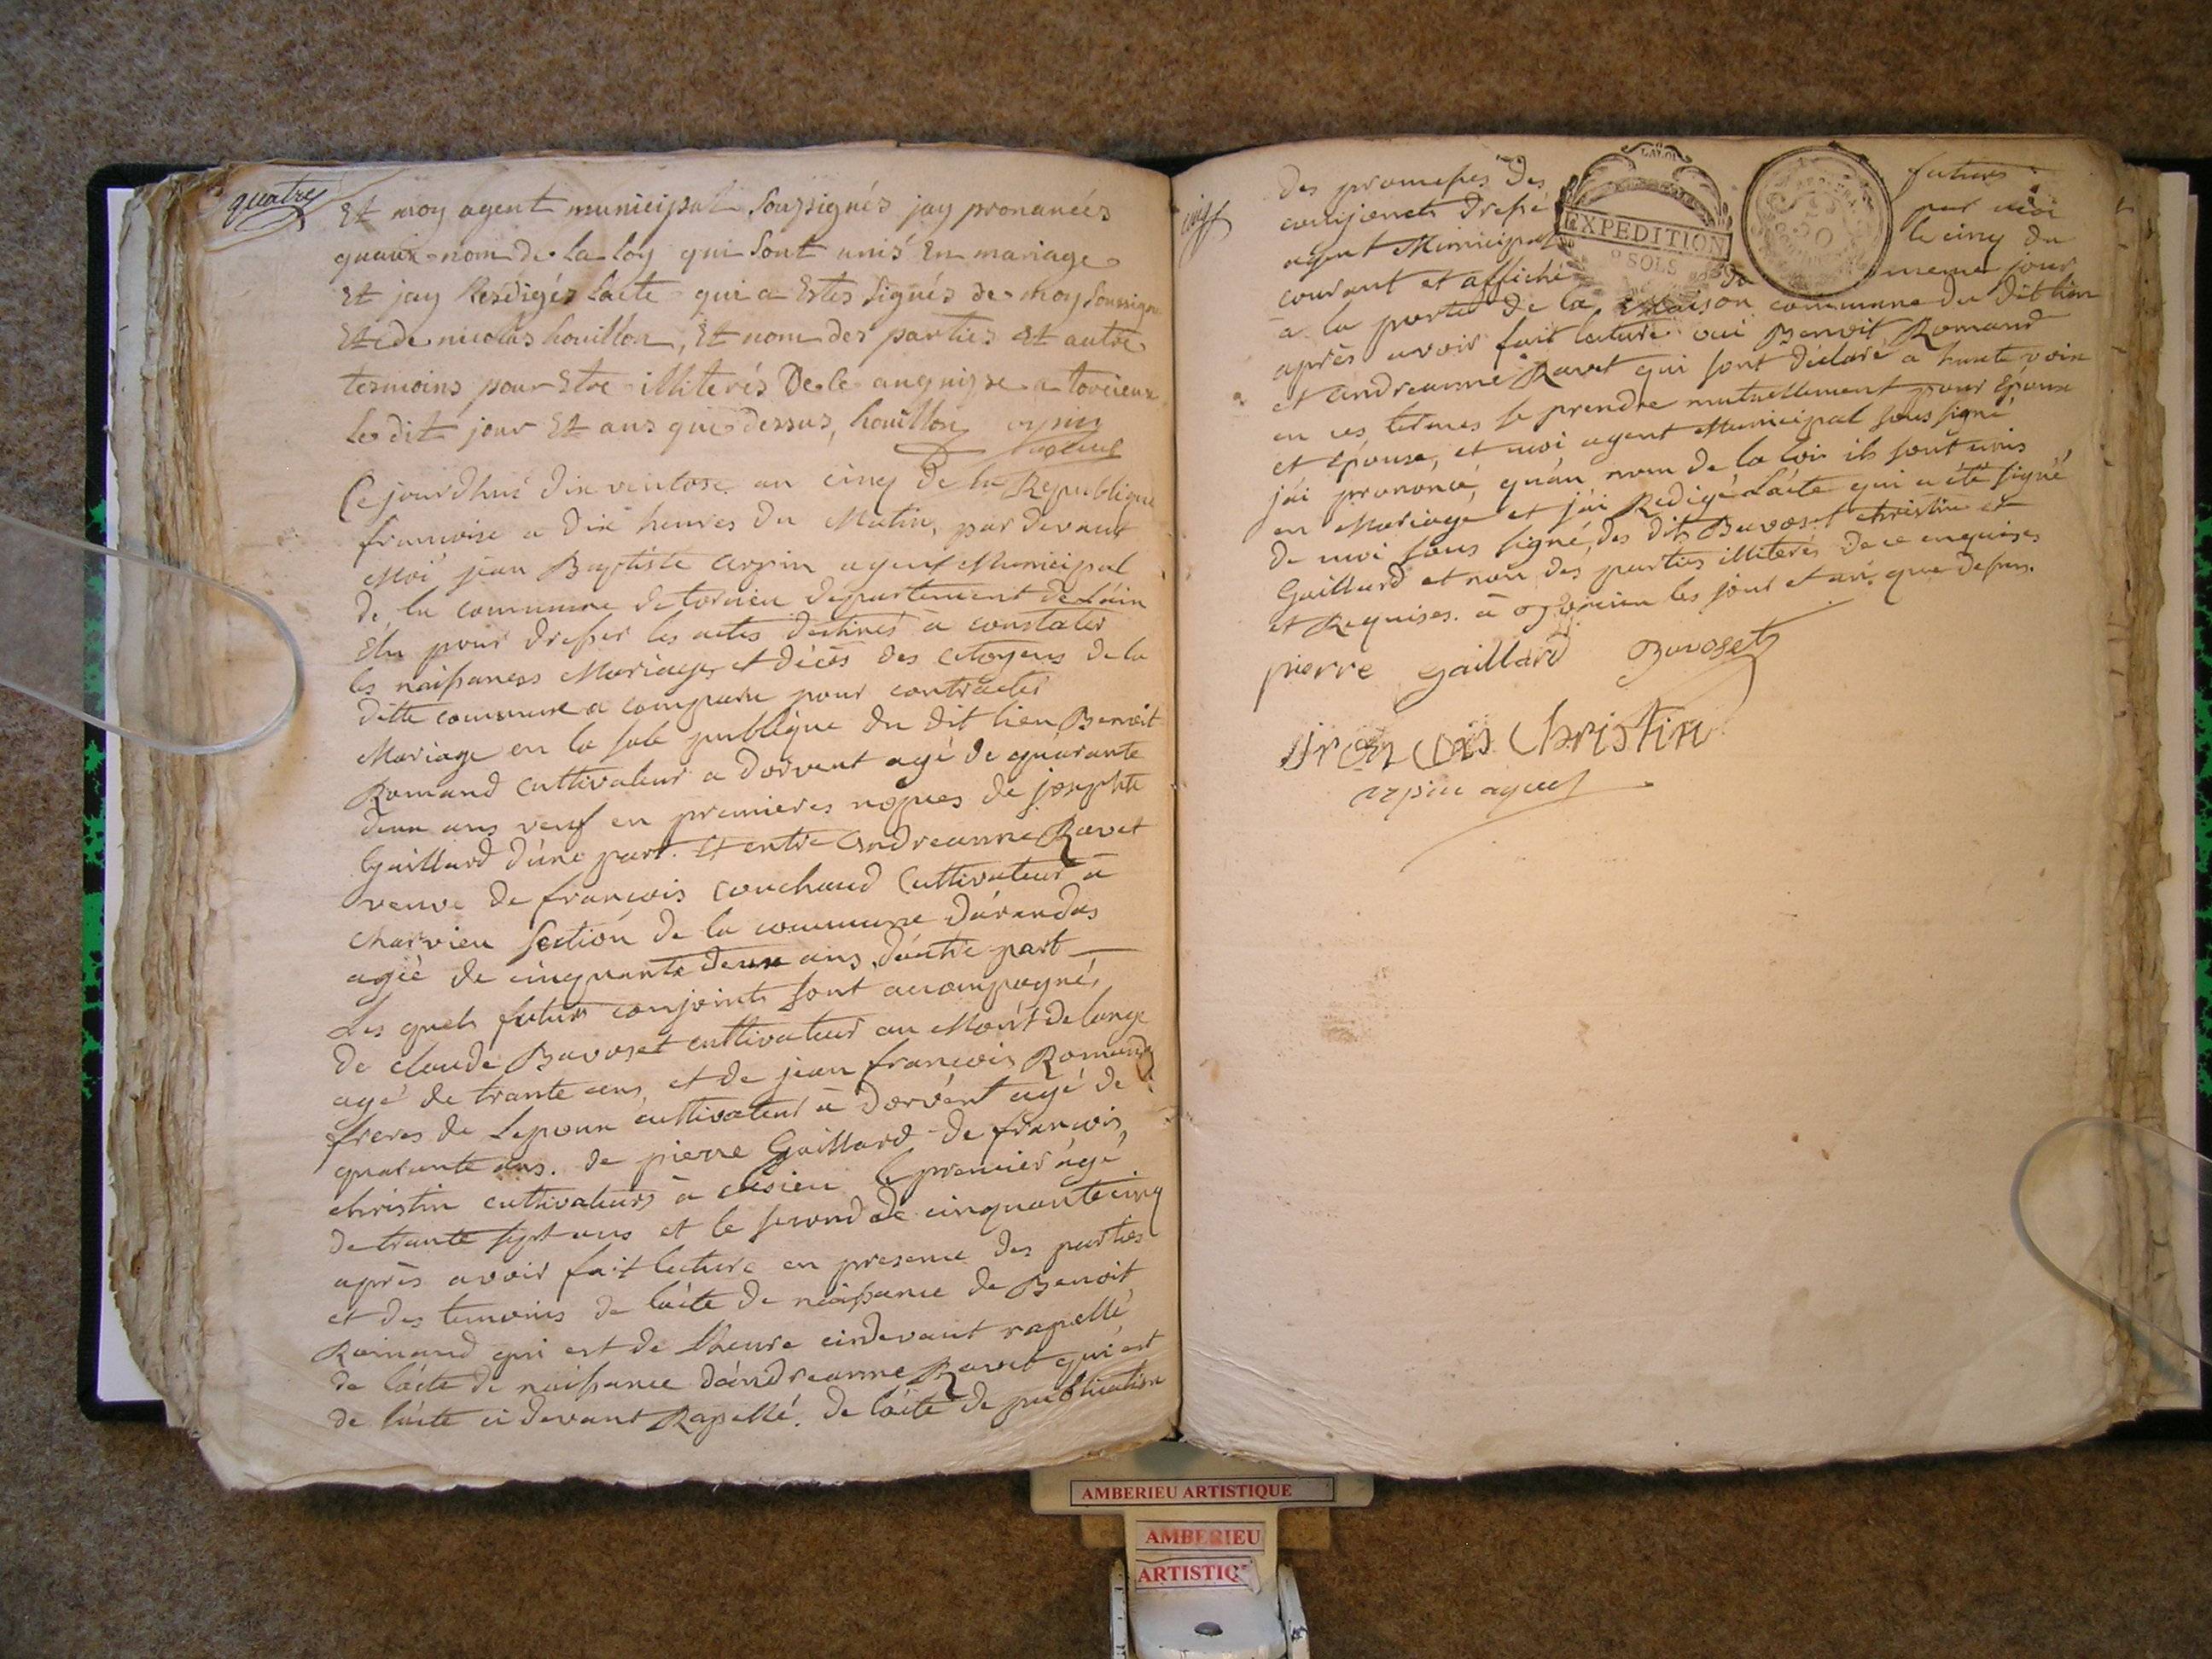 quatre
Et moy agent municipal soussignés jay prononcés
quaux nom de la loy qui sont unis En mariage
Et jay Resdigés lacte qui a Estes signés de moy soussigne
Et de nicolas houillon, Et nom des parties et autre
tesmoins pour Etre illiterés De le anquize a torcieux
Le dit jour Et ans que dessus, houillon
Ce jourdhui dix ventose an cinq de la Republique
francoise a dix heures du Matin, par devant
Moi jean Baptiste arpin agent Municipal
de la commune de torcieu departement de Lain
Elu pour dresser les actes destinés a constater
les naissances Mariages et décès des citoyens de la
ditte commune a comparu pour contracter
Mariage en la sale publique du dit lieu Benoit
Romand cultivateur a dorvent agé de quarante
deux ans veuf en premieres nopces de josephte
Gaillard d'une part. Et entre Andreanne Ravet
veuve de francois couchaud Cultivateur à
charvieu section de la commune dárandas
agée de cinquante deux ans, dautre part
Les quels futurs conjoints sont accompagnés
de claude Bavoset cultivateur au Mont de lange
agé de trante ans, et de jean francois Romand
freres de Lepoux cultivateur à dorvent agé de
quarante ans. de pierre Gaillard de francois
christin cultivateurs à clesieu le premier agé
de trante sept ans et le second de cinquante cinq
après avoir fait lecture en presence des parties
et des temoins de lácte de naissance de Benoit
Romand qui est de lheure cindevant rapellé
de lácte de naissance dándreanne Ravet qui est
de lácte ci devant Rapellé. de lácte de publication
cinq
des promesses des futurs
conjoincts dressé par moi
agent Municipal le cinq du
courant et affiché du meme jour
a la porte de la Maison commune du dit lieu
après avoir fait lecture oui Benoit Romand
et Andreanne Ravet qui sont déclaré a haute voix
en ces termes se prendre mutuellement pour Epoux
et Epouse, et moi agent Municipal sous signé
jái prononcé, quáu nom de la loi ils sont unis
en Mariage et j'ai Redigé Lácte qui a été signé
de moi sous signé, des dits Bavoset christin et
Gaillard et non des parties illiterés de ce enquises
et Requises. à torcieu les jour et an que dessus.
pierre Gaillard Bavoset
francois Christin
arpin agent
LA LOI
EXPEDITION
SOLS
AMBERIEU ARTISTIQUE
AMBERIEU
ARTISTIQ